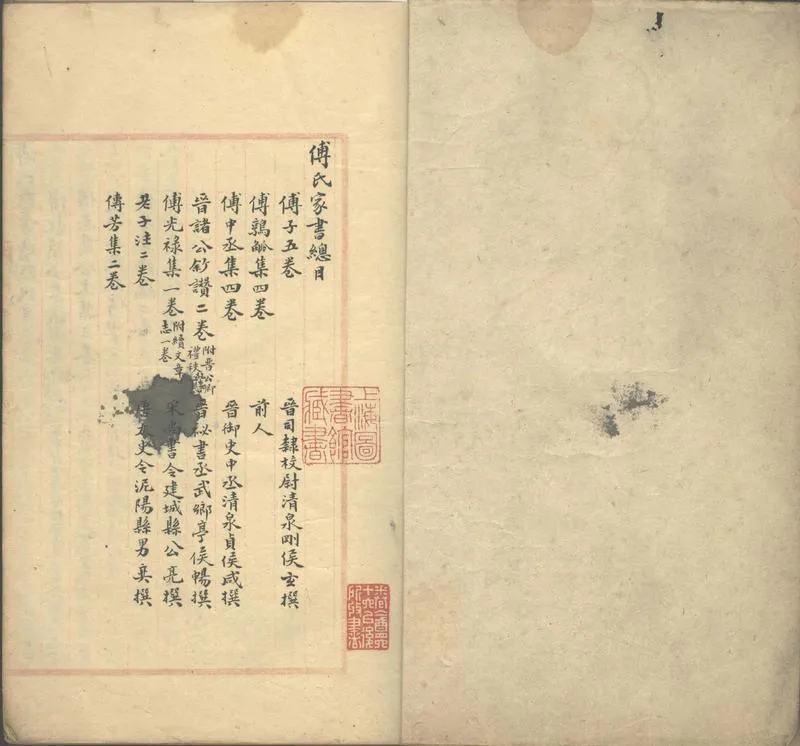 傅氏家書總目
傅子五卷 晉司隸校尉清泉剛侯玄撰
傅鶉觚集四卷 前人
傅中丞集四卷 晉御史中丞清泉貞侯咸撰
晉諸公敘讚二卷 附晉公卿禮秩 晉秘書丞武鄉亭侯暢撰
傅光祿集一卷 附續文章志一卷 宋尚書令建城縣公亮撰
老子注二卷 太史令泥陽縣男奕撰
傳芳集二卷
上海圖書館藏書